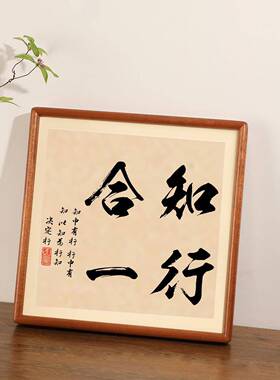 知行
合一
知中有行 行中有
知 以知为行 知
决定行